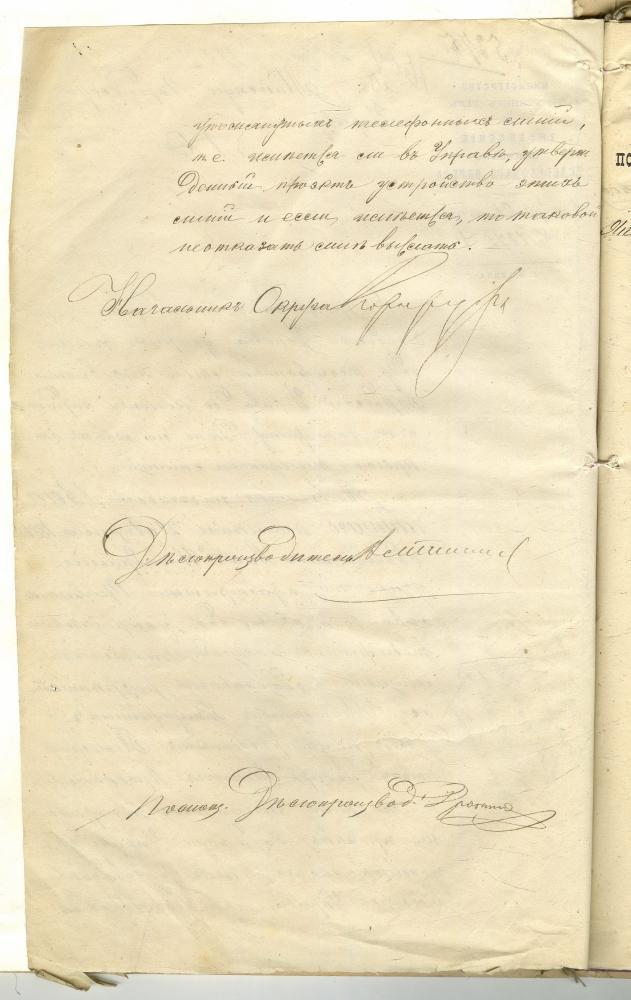 упомянутыхъ телефонныхъ линій,
т.е. имѣется ли въ Управѣ, утверж
денный проэктъ устройства этихъ
линій и если имѣется, то таковой
не отказать мнѣ выслать.
Начальникъ Округа
Дѣлопроизводитель
Помощ. Дѣлопроизвод.
по